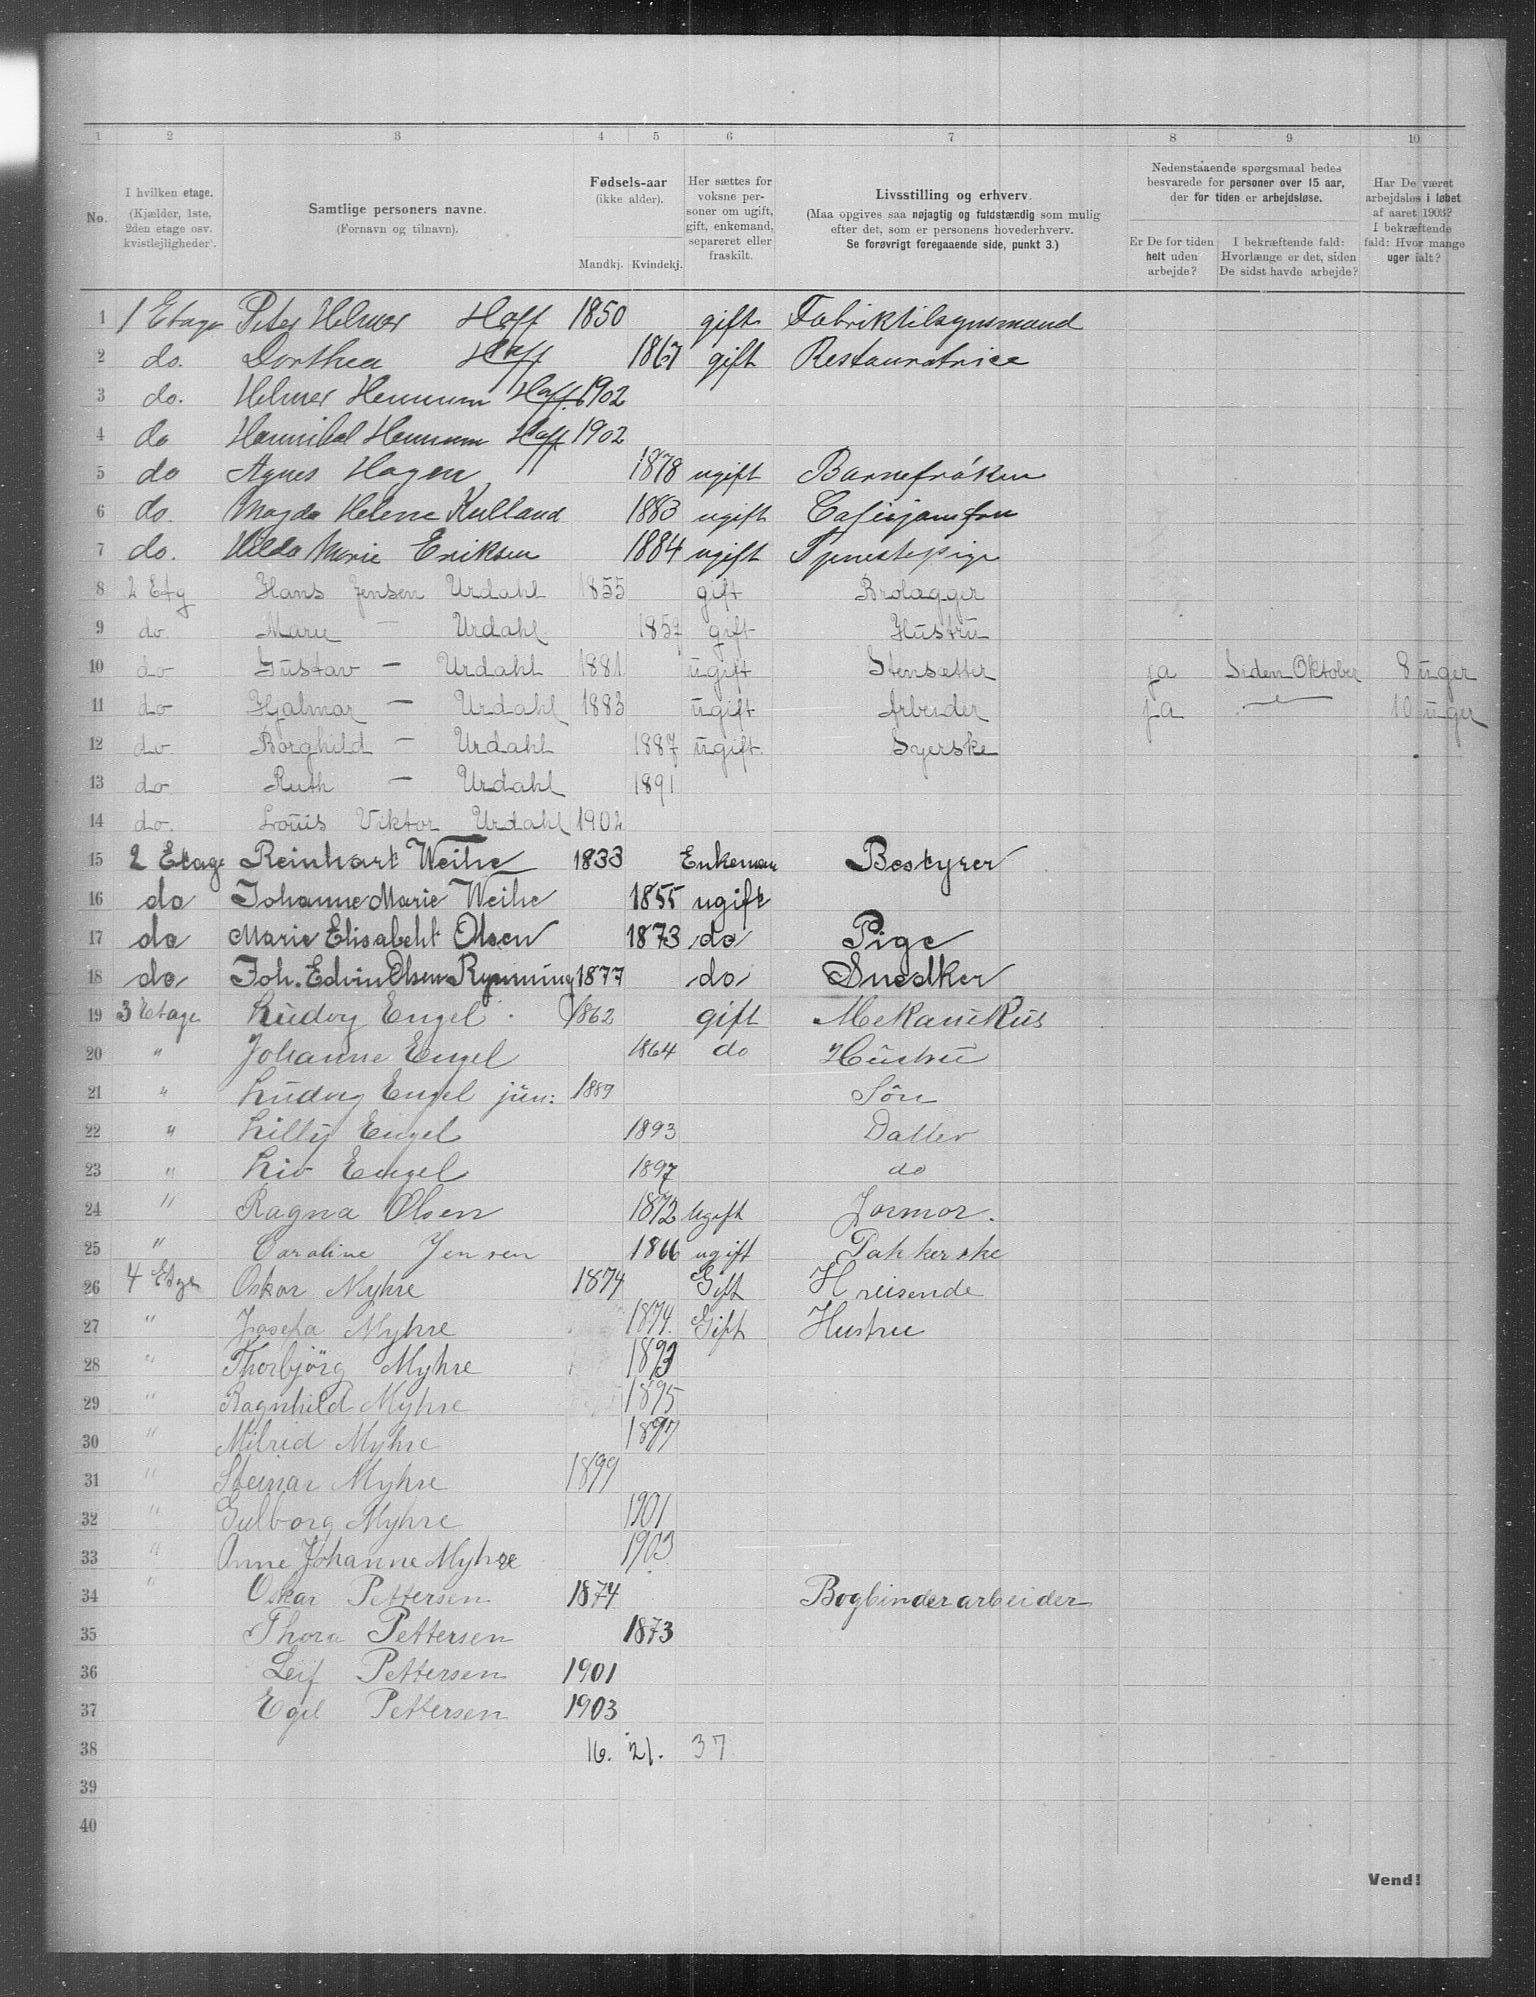 1 2 3 4 5 6 7 8 9 10
No. I hvilken etage. (Kjælder, 1ste, 2den etage osv. kvistlejligheder). Samtlige personers navne. (Fornavn og tilnavn). Fødsels-aar (ikke alder). Mandkj. Kvindekj. Her sættes for voksne personer om ugift, gift, enkemand, separeret eller fraskilt. Livsstilling og erhverv. (Maa opgives saa nøjagtig og fuldstændig som mulig efter det, som er personens hovederhverv. Se forøvrigt foregaaende side, punkt 3.) Nedenstaaende spørgsmaal bedes besvarede for personer over 15 aar, der for tiden er arbejdsløse. Er De for tiden helt uden arbejde? I bekræftende fald: Hvorlænge er det, siden De sidst havde arbejde? Har De været arbejdsløs i løbet af aaret 1903? I bekræftende fald: Hvor mange uger ialt?
1 1 Etage Peter Helmer Hoff 1850 gift Fabriktilsynsmand
2 do. Dorthea Hoff 1867 gift Restauratrice
3 do. Helmer Hennum Hoff 1902
4 do Hannibal Hennum Hoff 1902
5 do Agnes Hagen 1878 ugift Barnefröken
6 do. Magda Helene Kulland 1883 ugift ugift
7 do. Hilda Marie Eriksen 1884 ugift Tjenestepige
8 2 Etg Hans Jensen Urdahl 1855 gift Brolægger
9 do Marie — Urdahl 1857 gift Hustru
10 do Gustav — Urdahl 1881 ugift Stensætter ja Siden Oktober 8 uger
11 do Hjalmar — Urdahl 1883 ugift Arbeider ja — 10 uger
12 do Borghild — Urdahl 1887 ugift. Syerske
13 do Ruth — Urdahl 1891
14 do. Louis Viktor Urdahl 1902
15 2 Etage Reinhart Weihe 1833 Enkeman Bestyrer
16 do Johanne Marie Weihe 1855 ugift
17 do Marie Elisabeht Olsen 1873 do Pige
18 do Joh. Edvin Olsen Rynning 1877 do Snedker
19 3 Etage Ludvig Engel 1862 gift Mekanikus
20 " Johanne Engel 1864 do Hustru
21 " Ludvig Engel jun: 1889 Sön
22 " Lilly Engel 1893 Datter
23 " Liv Engel 1897 do
24 " Ragna Olsen 1872 Ugift Jormor.
25 " Caroline Jensen 1866 ugift Pakkerske
26 4 Etge Oskar Myhre 1874 Gift H reisende
27 " Josefa Myhre 1874. Gift Hustru
28 " Thorbjörg Myhre 1893
29 " Ragnhild Myhre 1895
30 " Milrid Myhre 1897
31 " Steinar Myhre 1899
32 " Gulborg Myhre 1901
33 " Anne Johanne Myhre 1903
34 " Oskar Pettersen 1874 Bogbinderarbeider
35 Thora Pettersen 1873
36 Leif Pettersen 1901
37 Egil Pettersen 1903
38 16. 21. 37
39
40
Vend!